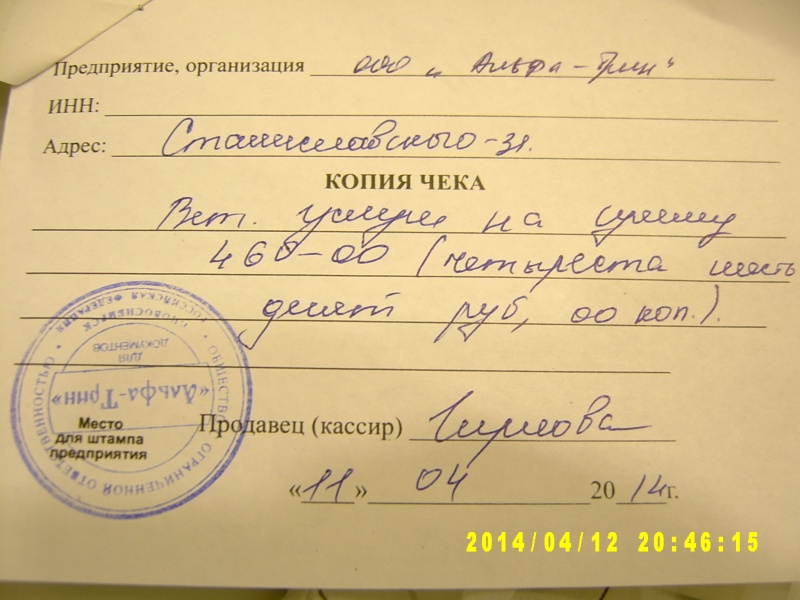 Предприятие, организация ООО „Альфа-Грин"
ИНН:
Адрес: Станиславского-31.
КОПИЯ ЧЕКА
Вет. услуги на сумму
460-00 (четыреста шесть
десят руб, 00 коп.).
Продавец (кассир)
«11» 04 2014г.
Место
для штампа
предприятия
РОССИЙСКАЯ ФЕДЕРАЦИЯ
г. НОВОСИБИРСК
ОБЩЕСТВО С ОГРАНИЧЕННОЙ ОТВЕТСТВЕННОСТЬЮ
«Альфа-Грин»
ДЛЯ
ДОКУМЕНТОВ
2014/04/12 20:46:15